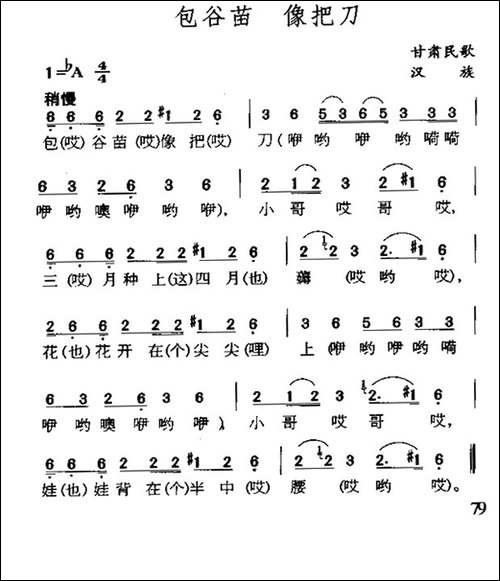 包谷苗 像把刀
甘肃民歌
1=♭A 4/4
汉 族
稍慢
6 6 6 2 2 #1 2 6 | 3 6 5 3 6 5 3 3 3
包(哎)谷苗(哎)像 把(哎) 刀(咿 哟 咿 哟 嗬嗬
6 3 2 6 3 6 | 2 1 2 3 2 #1 6 |
咿 哟 噢 咿 哟 咿), 小 哥 哎 哥 哎,
6 6 6 2 2 2 #1 2 6 | 2 2 3 2. #1 6 |
三(哎)月种上(这)四 月(也) 薅 (哎 哟 哎),
6 6 6 2 2 2 #1 2 6 | 3 3 5 6 3 3
花(也)花 开 在(个)尖 尖(哩) 上(咿 哟 咿 哟 嗬
6 3 2 6 3 6 | 2 1 2 3 2. #1 6 |
咿 哟 噢 咿 哟 咿), 小 哥 哎 哥 哎,
6 6 6 2 2 2 #1 2 6 | 2 2 3 2. #1 6
娃(也)娃 背 在(个)半 中(哎) 腰 (哎 哟 哎)。
79